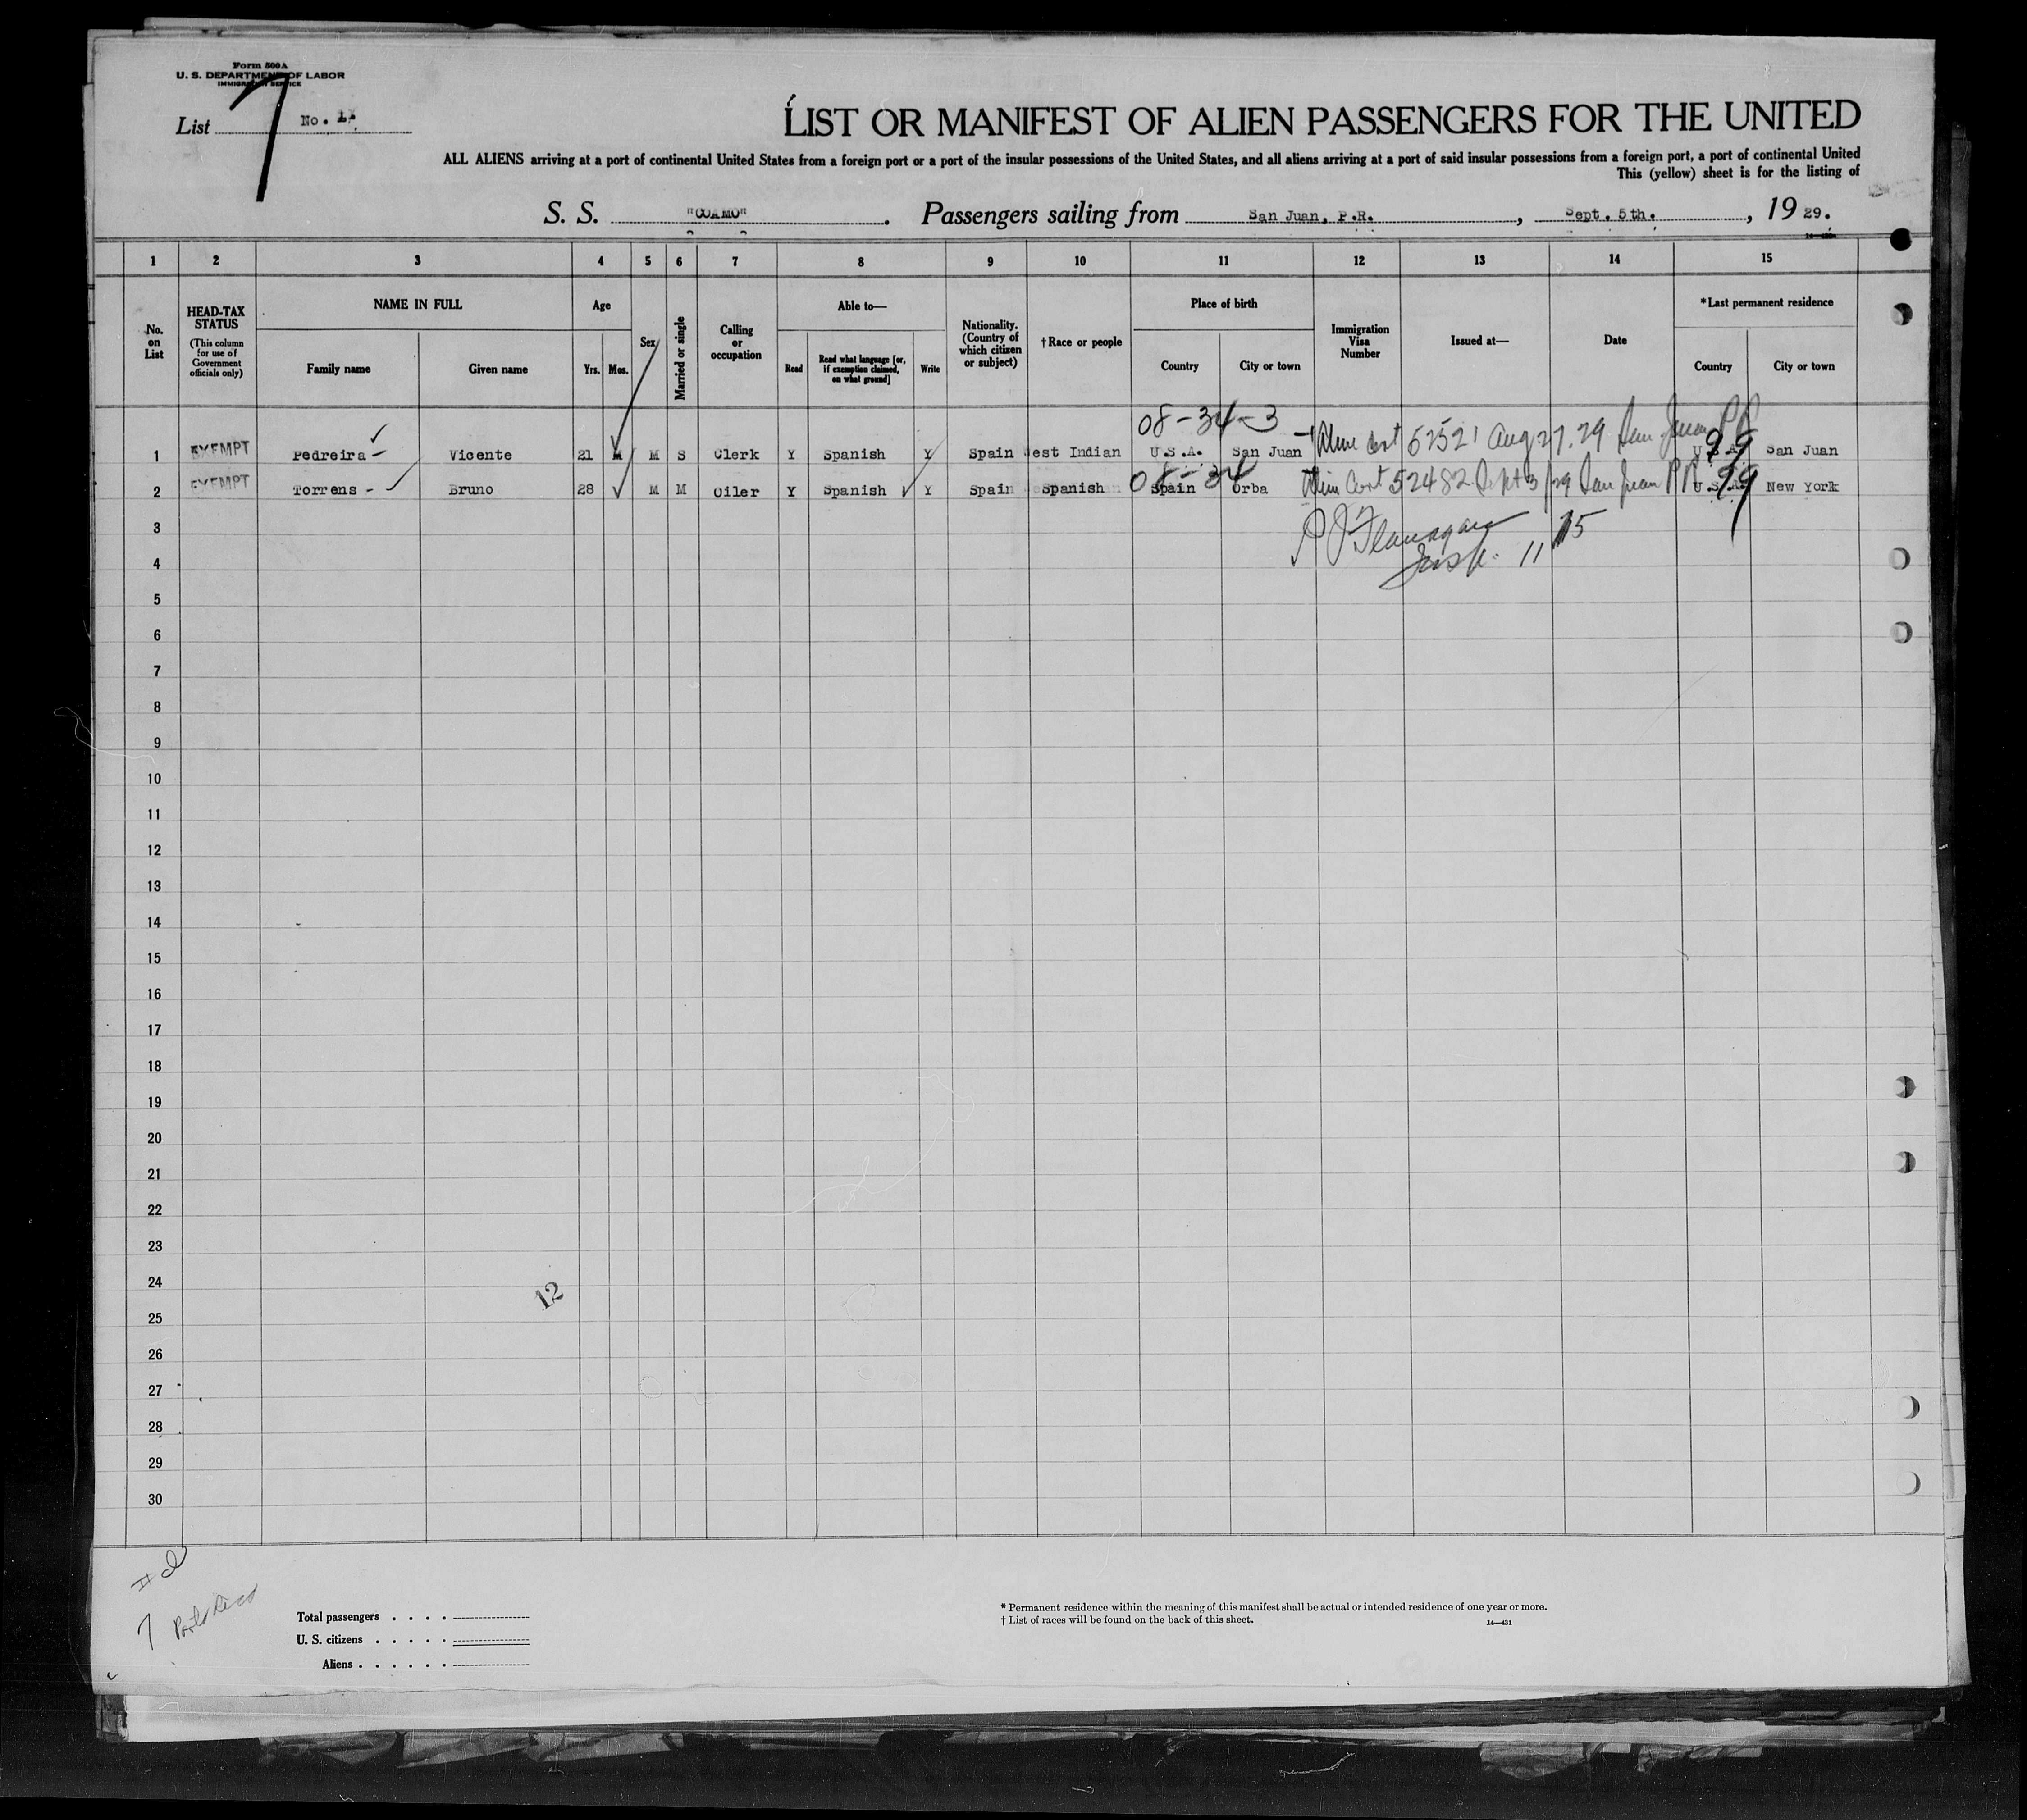 Form 500A
U. S. DEPARTMENT OF LABOR
IMMIGRATION SERVICE
List 7 No. 1.
LIST OR MANIFEST OF ALIEN PASSENGERS FOR THE UNITED
ALL ALIENS arriving at a port of continental United States from a foreign port or a port of the insular possessions of the United States, and all aliens arriving at a port of said insular possessions from a foreign port, a port of continental United
This (yellow) sheet is for the listing of
S. S. "COAMO". Passengers sailing from San Juan, P.R., Sept. 5th., 1929.
1 2 3 4 5 6 7 8 9 10 11 12 13 14 15
No. on List
HEAD-TAX STATUS
(This column for use of Government officials only)
NAME IN FULL
Family name Given name
Age
Yrs. Mos.
Sex
Married or single
Calling or occupation
Able to—
Read Read what language [or, if exemption claimed, on what ground] Write
Nationality. (Country of which citizen or subject)
† Race or people
Place of birth
Country City or town
Immigration Visa Number
Issued at—
Date
*Last permanent residence
Country City or town
08-34-3
1 EXEMPT Pedreira - Vicente 21 M M S Clerk Y Spanish Y Spain West Indian U.S.A. San Juan Alien Cert 52521 Aug 27. 29 San Juan PR U.S.A. 99 San Juan
08-34
2 EXEMPT Torrens - Bruno 28 M M Oiler Y Spanish Y Spain Spanish Spain Orba Alien Cert 52482 Sept 3/29 San Juan PR U.S.A. 99 New York
3
P J Flanagan 75
4
Insp. 11
5
6
7
8
9
10
11
12
13
14
15
16
17
18
19
20
21
22
23
24
12
25
26
27
28
29
30
7 Porto Rico
Total passengers . . . .
U. S. citizens . . . . .
Aliens . . . . . .
* Permanent residence within the meaning of this manifest shall be actual or intended residence of one year or more.
† List of races will be found on the back of this sheet.
14—431